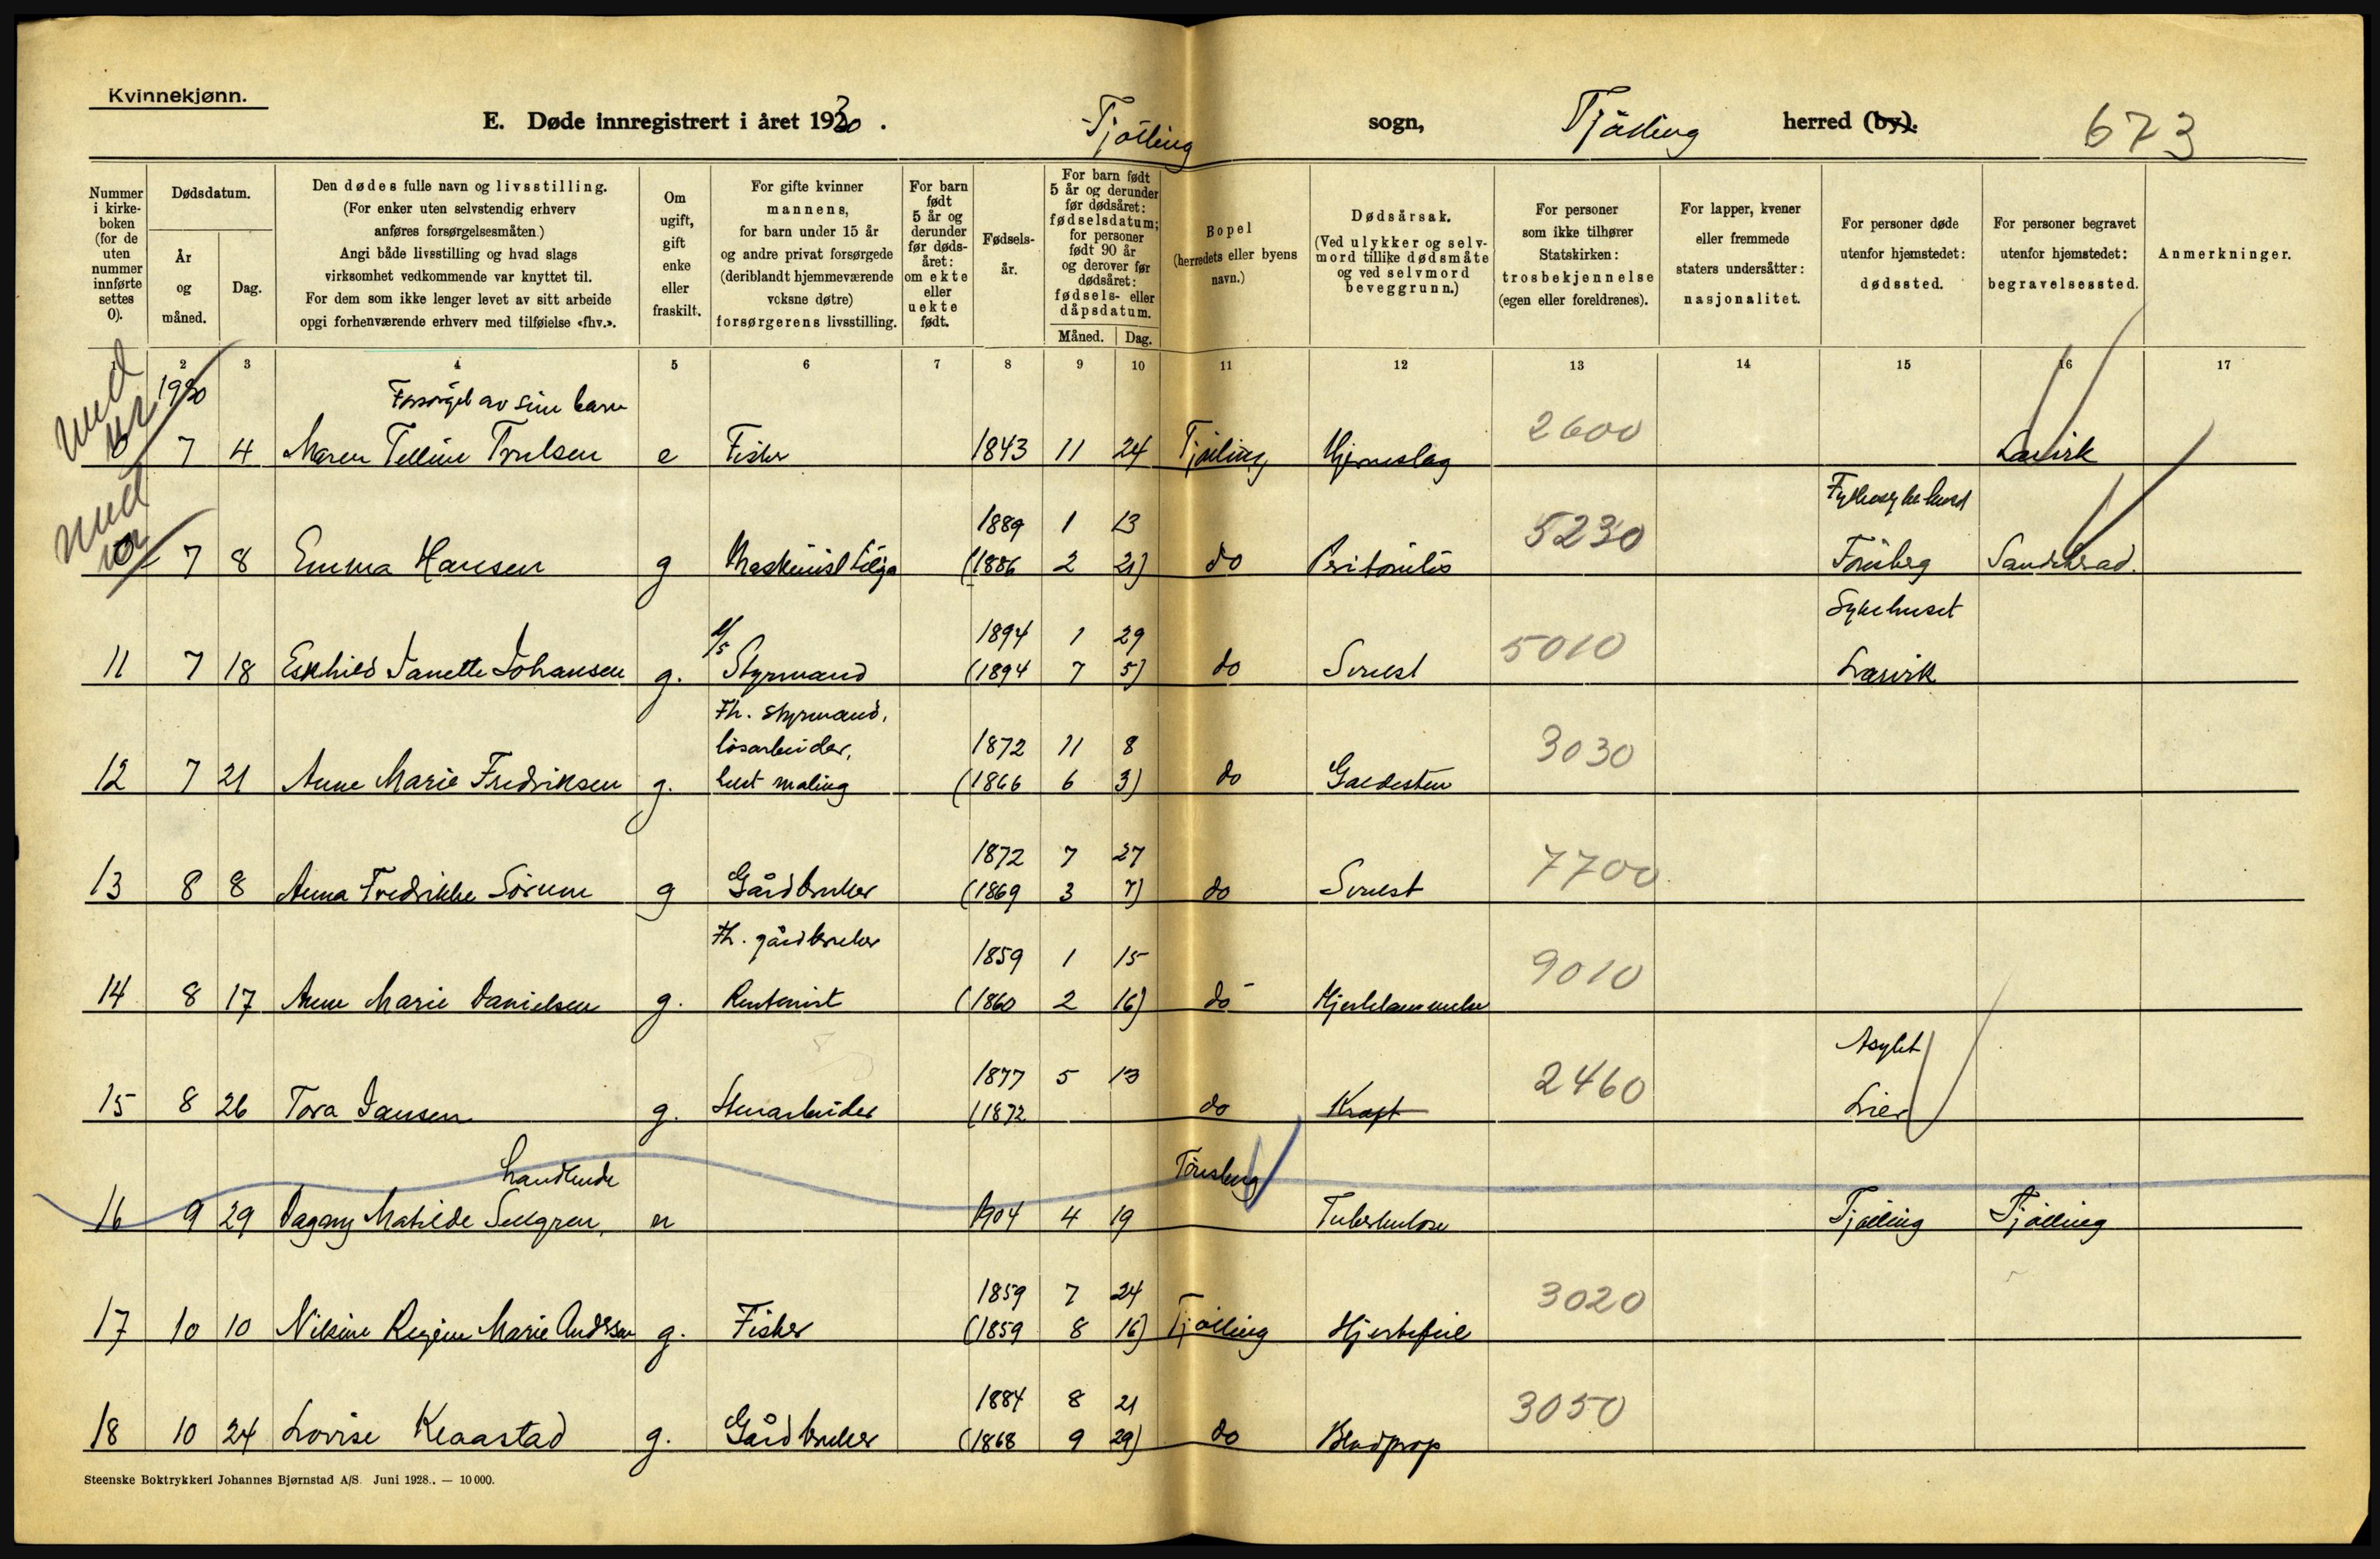 Kvinnekjønn.
E. Døde innregistrert i året 1930. Tjølling sogn, Tjølling herred (by). 673
Nummer i kirkeboken (for de uten nummer innførte settes 0).
Dødsdatum.
År og måned.
Dag.
Den dødes fulle navn og livsstilling.
(For enker uten selvstendig erhverv
anføres forsørgelsesmåten.)
Angi både livsstilling og hvad slags
virksomhet vedkommende var knyttet til.
For dem som ikke lenger levet av sitt arbeide
opgi forhenværende erhverv med tilføielse «fhv.».
Om ugift, gift enke eller fraskilt.
For gifte kvinner
mannens,
for barn under 15 år
og andre privat forsørgede
(deriblandt hjemmeværende
voksne døtre)
forsørgerens livsstilling.
For barn født 5 år og derunder før dødsåret: om ekte eller uekte født.
Fødselsår.
For barn født
5 år og derunder
før dødsåret:
fødselsdatum;
for personer
født 90 år
og derover før
dødsåret:
fødsels- eller
dåpsdatum.
Måned. Dag.
Bopel
(herredets eller byens
navn.)
Dødsårsak.
(Ved ulykker og selv-
mord tillike dødsmåte
og ved selvmord
beveggrunn.)
For personer
som ikke tilhører
Statskirken:
trosbekjennelse
(egen eller foreldrenes).
For lapper, kvener
eller fremmede
staters undersåtter:
nasjonalitet.
For personer døde
utenfor hjemstedet:
dødssted.
For personer begravet
utenfor hjemstedet:
begravelsessted.
Anmerkninger.
2 3 4 5 6 7 8 9 10 11 12 13 14 15 16 17
1930 Forsørget av sine barn 2600
7 4 Maren Telline Trulsen e Fisker 1843 11 24 Tjølling Hjerneslag Larvik
1889 1 13 5230 Fylkessykehuset
0 7 8 Emma Hansen g Maskinist (1886 2 21) do Peritonitis Tønsberg Sandeherad.
1894 1 29 5010 Sykehuset
11 7 18 Eskhild Janette Johansen g. Styrmand (1894 7 5) do Larvik
Fh. styrmand,
løsarbeider, 1872 11 8 3030
12 7 21 Anne Marie Fredriksen g. maling (1866 6 3) do Galdesten
1872 7 27 7700
13 8 8 Anna Fredrikke Sørum g Gårdbruker (1869 3 7) do
Fh. gårdbruker 1859 1 15 9010
14 8 17 Anne Marie Danielsen g. Rentenist (1860 2 16) do Hjertelammelse
1877 5 13 2460 Asylet
15 8 26 Tora Jansen g. Stenarbeider (1872 do Kraft Lier
Handlende Tønsberg
16 9 29 Dagny Matilde Sellgren, en 1904 4 19 Tuberkulose Tjølling Tjølling
1859 7 24 3020
17 10 10 Nilsine Regine Marie Andersen g. Fisker (1859 8 16) Tjølling Hjertefeil
1884 8 21 3050
18 10 24 Lovise Klaastad g. Gårdbruker (1868 9 29) do Blodprop
Steenske Boktrykkeri Johannes Bjørnstad A/S. Juni 1928.. — 10 000.